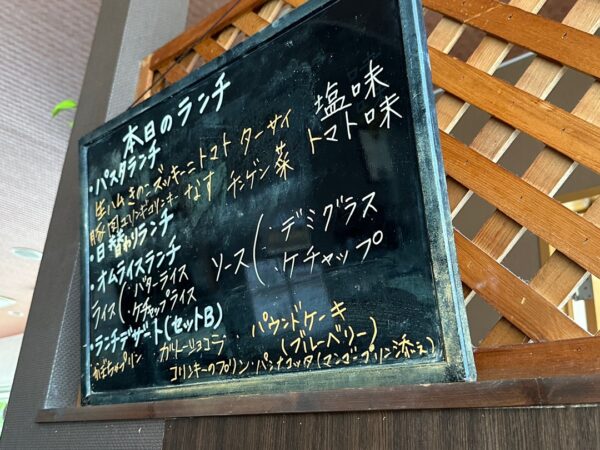 本日のランチ
・パスタランチ
生ハム きのこ ズッキーニ トマト ターサイ 塩味
豚肉 コリンキー なす チンゲン菜 トマト味
・日替わりランチ
・オムライスランチ
ライス( ・バターライス ソース( ・デミグラス
・ケチャップライス ・ケチャップ
・ランチデザート(セットB)
かぼちゃプリン ・ガトーショコラ ・パウンドケーキ
(ブルーベリー)
コリンキーのプリン・パンナコッタ(マンゴープリン添え)